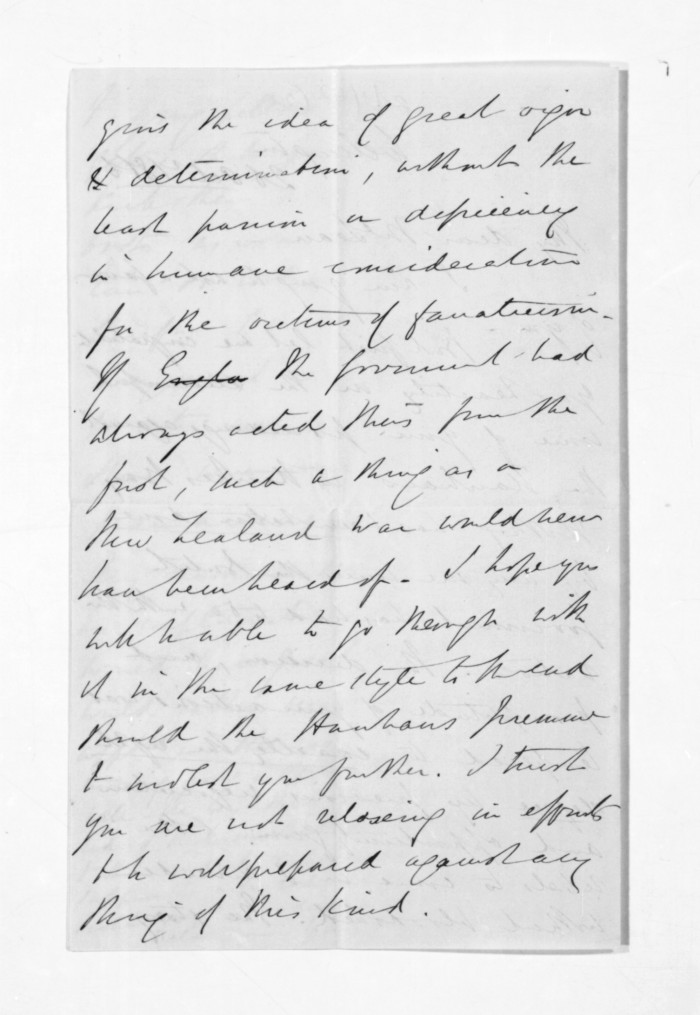 gives the idea of great vigor
& determination, without the
least passion or deficiency
in humane consideration
for the victims of fanaticism -
If Engla the Government had
always acted thus from the
first, such a thing as a
New Zealand war would never
have been heard of - I hope you
will be able to go through with
it in the same style to the end
should the Hauhaus presume
to molest you further. I trust
you are not relaxing in efforts
to be well prepared against any
thing of this kind.